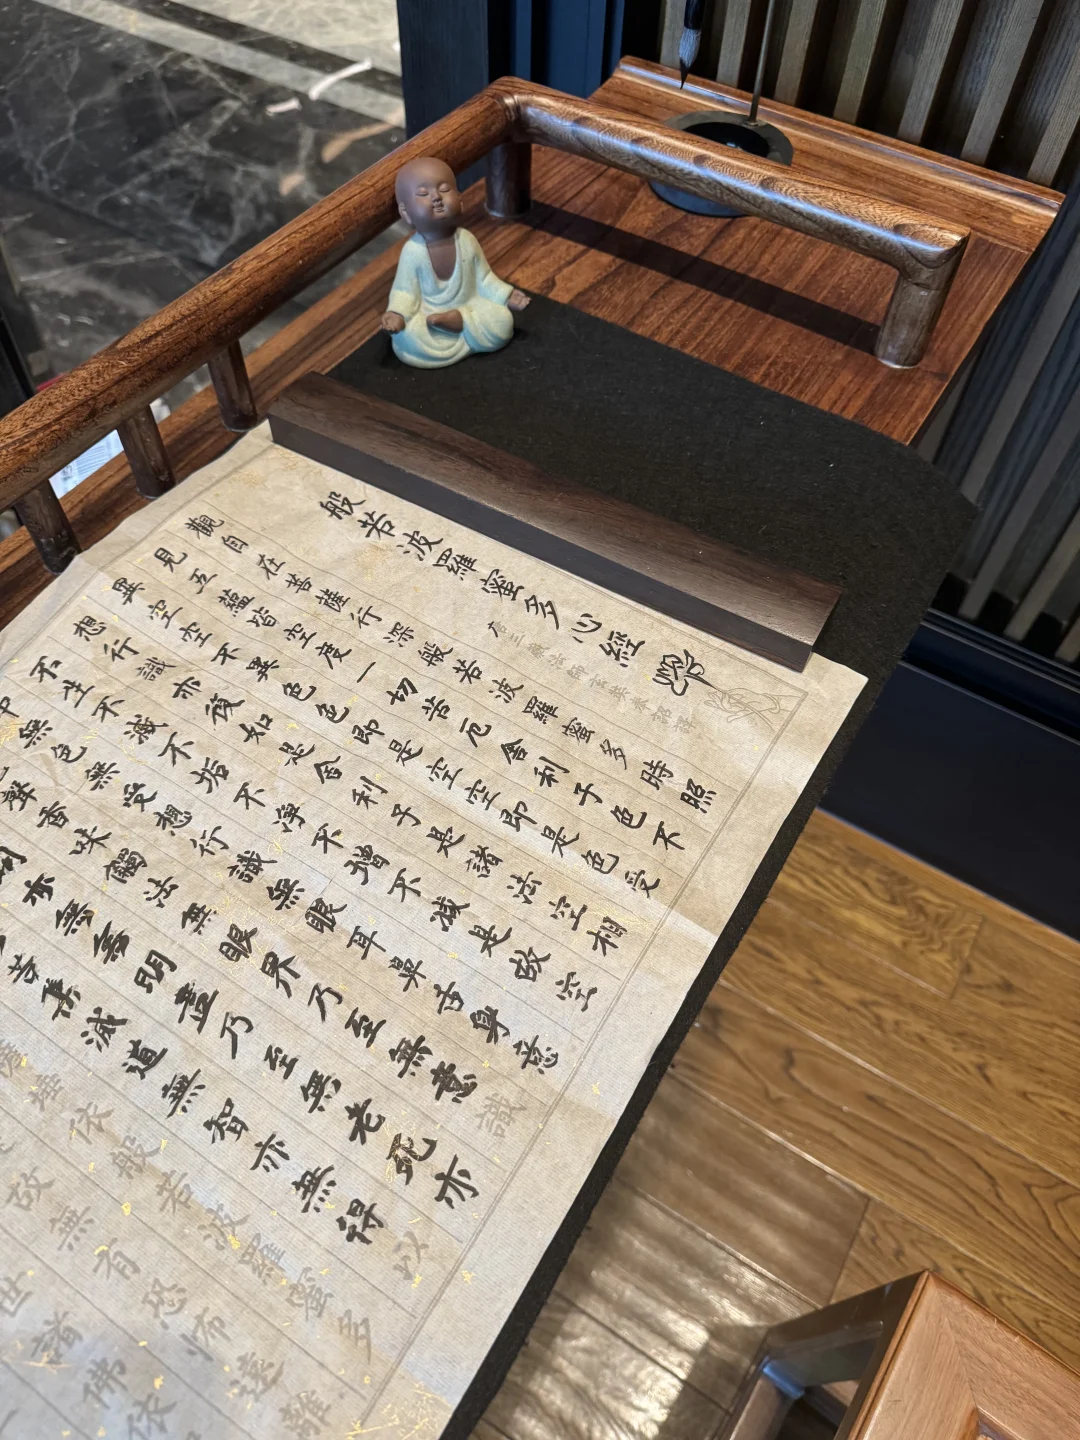 般若波羅蜜多心經
唐三藏法師玄奘奉詔譯
觀自在菩薩行深般若波羅蜜多時照
見五蘊皆空度一切苦厄舍利子色不
異空空不異色色即是空空即是色受
想行識亦復如是舍利子是諸法空相
不生不滅不垢不淨不增不減是故空
中無色無受想行識無眼耳鼻舌身意
色聲香味觸法無眼界乃至無意識
明亦無無明盡乃至無老死亦
苦集滅道無智亦無得以
薩埵依般若波羅蜜多
故無有恐怖遠離
世諸佛依